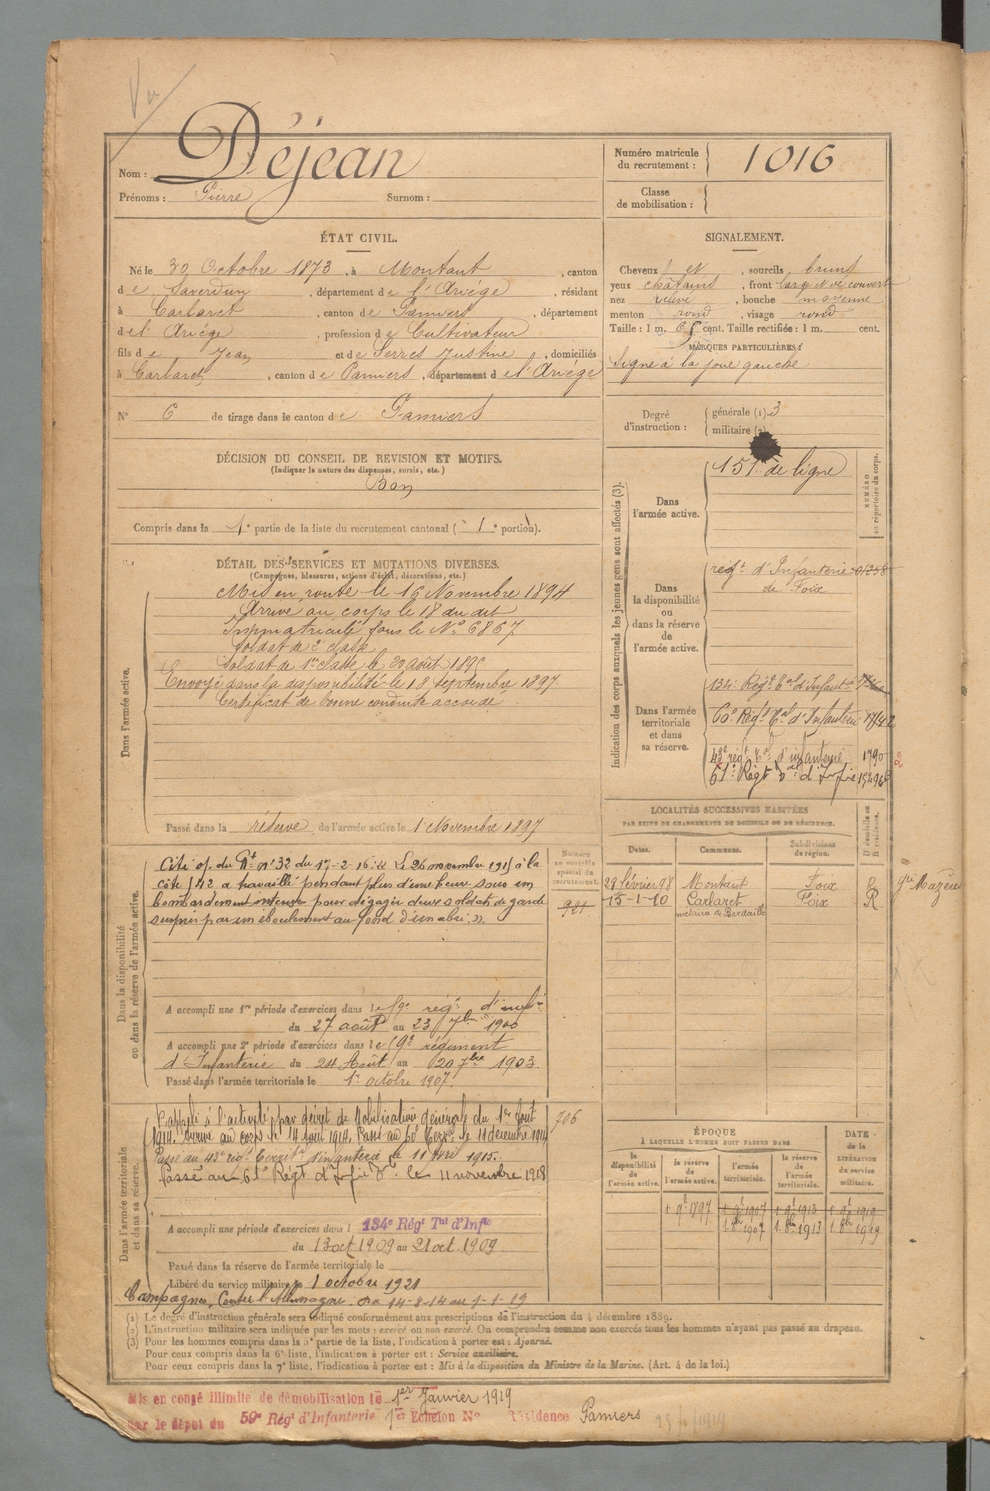 Vu
Nom : Déjean
Prénoms : Pierre Surnom :
Numéro matricule du recrutement : 1016
Classe de mobilisation :
ÉTAT CIVIL.
Né le 30 Octobre 1873, à Montaut, canton
de Saverdun, département de l'Ariége, résidant
à Carlaret, canton de Pamiers, département
de l'Ariége, profession de Cultivateur
fils de Jean et de Serres Justine, domiciliés
à Carlaret, canton de Pamiers, département de l'Ariége
N° 6 de tirage dans le canton de Pamiers
SIGNALEMENT.
Cheveux et, sourcils bruns
yeux chatains, front large et découvert
nez, bouche moyenne
menton rond, visage rond
Taille : 1 m. 65 cent. Taille rectifiée : 1 m. cent.
MARQUES PARTICULIÈRES :
Signe à la joue gauche
Degré d'instruction : générale (1) 3
militaire (2)
DÉCISION DU CONSEIL DE REVISION ET MOTIFS.
(Indiquer la nature des dispenses, sursis, etc.)
Bon
Compris dans la 1e partie de la liste du recrutement cantonal ( 1e portion).
DÉTAIL DES SERVICES ET MUTATIONS DIVERSES.
(Campagnes, blessures, actions d'éclat, décorations, etc.)
Dans l'armée active.
Mis en route le 16 Novembre 1894
Arrivé au corps le 18 du dit
Immatriculé sous le N° 6867
Soldat de 2e classe
Soldat de 1re classe le 20 août 1895
Envoyé dans la disponibilité le 18 Septembre 1897
Certificat de bonne conduite accordé
Passé dans la réserve de l'armée active le 1 Novembre 1897
Indication des corps auxquels les jeunes gens sont affectés (3).
Dans l'armée active.
151e de ligne
NUMÉRO au répertoire du corps.
Dans la disponibilité ou dans la réserve de l'armée active.
régt d'Infanterie 01258
de Foix
Dans l'armée territoriale et dans sa réserve.
134e Régt Tal d'Infanterie
60e Régt Tal d'Infanterie 1742
43e régt Tal d'infanterie 1790
61e Régt Tal d'Infie 15496
2
LOCALITÉS SUCCESSIVES HABITÉES
PAR SUITE DE CHANGEMENTS DE DOMICILE OU DE RÉSIDENCE.
Dates. Communes. Subdivisions de région. D domicile R résidence.
28 février 98 Montaut Foix D
15-1-10 Carlaret Foix R
métairie de Bardaille
Dans la disponibilité ou dans la réserve de l'armée active.
Numéro au contrôle spécial du recrutement.
921
Cité o/ du Rt n° 32 du 17-2-16 : « Le 26 novembre 1915 à la
côte 142 a travaillé pendant plus d'une heure sous un
bombardement intense pour dégager deux soldats de garde
surpris par un éboulement au fond d'un abri ».
A accompli une 1re période d'exercices dans le 59e régt d'infie
du 27 août au 23 7bre 1900
A accompli une 2e période d'exercices dans le 59e régiment
d'Infanterie du 24 Août au 20 7bre 1903
Passé dans l'armée territoriale le 1er octobre 1907.
Dans l'armée territoriale et dans sa réserve.
706
Rappelé à l'activité par décret de Mobilisation générale du 1er Août
1914. Arrivé au corps le 14 Août 1914. Passé au 60e Terral le 11 décembre 1914
Passé au 43e régt Territal d'infanterie le 11 Avril 1915.
Passé au 61e Régt d'Infie Tle le 11 novembre 1918
A accompli une période d'exercices dans l 134e Régt Tal d'Infie
du 13 oct 1909 au 21 oct. 1909.
Passé dans la réserve de l'armée territoriale le
Libéré du service militaire le 1 octobre 1921
Campagne. Contre l'Allemagne. du 14-8-14 au 1-1-19
ÉPOQUE
À LAQUELLE L'HOMME DOIT PASSER DANS
la disponibilité de l'armée active. la réserve de l'armée active. l'armée territoriale. la réserve de l'armée territoriale.
DATE de la LIBÉRATION du service militaire.
1897 1907 1913 1919
1907 1913 1919
(1) Le degré d'instruction générale sera indiqué conformément aux prescriptions de l'instruction du 4 décembre 1889.
(2) L'instruction militaire sera indiquée par les mots : exercé ou non exercé. On comprendra comme non exercés tous les hommes n'ayant pas passé au drapeau.
(3) Pour les hommes compris dans la 5e partie de la liste, l'indication à porter est : Ajourné.
Pour ceux compris dans la 6e liste, l'indication à porter est : Service auxiliaire.
Pour ceux compris dans la 7e liste, l'indication à porter est : Mis à la disposition du Ministre de la Marine. (Art. 4 de la loi.)
Mis en congé illimité de démobilisation le 1er Janvier 1919
par le dépôt du 59e Régt d'Infanterie 1er Echelon N° Résidence Pamiers